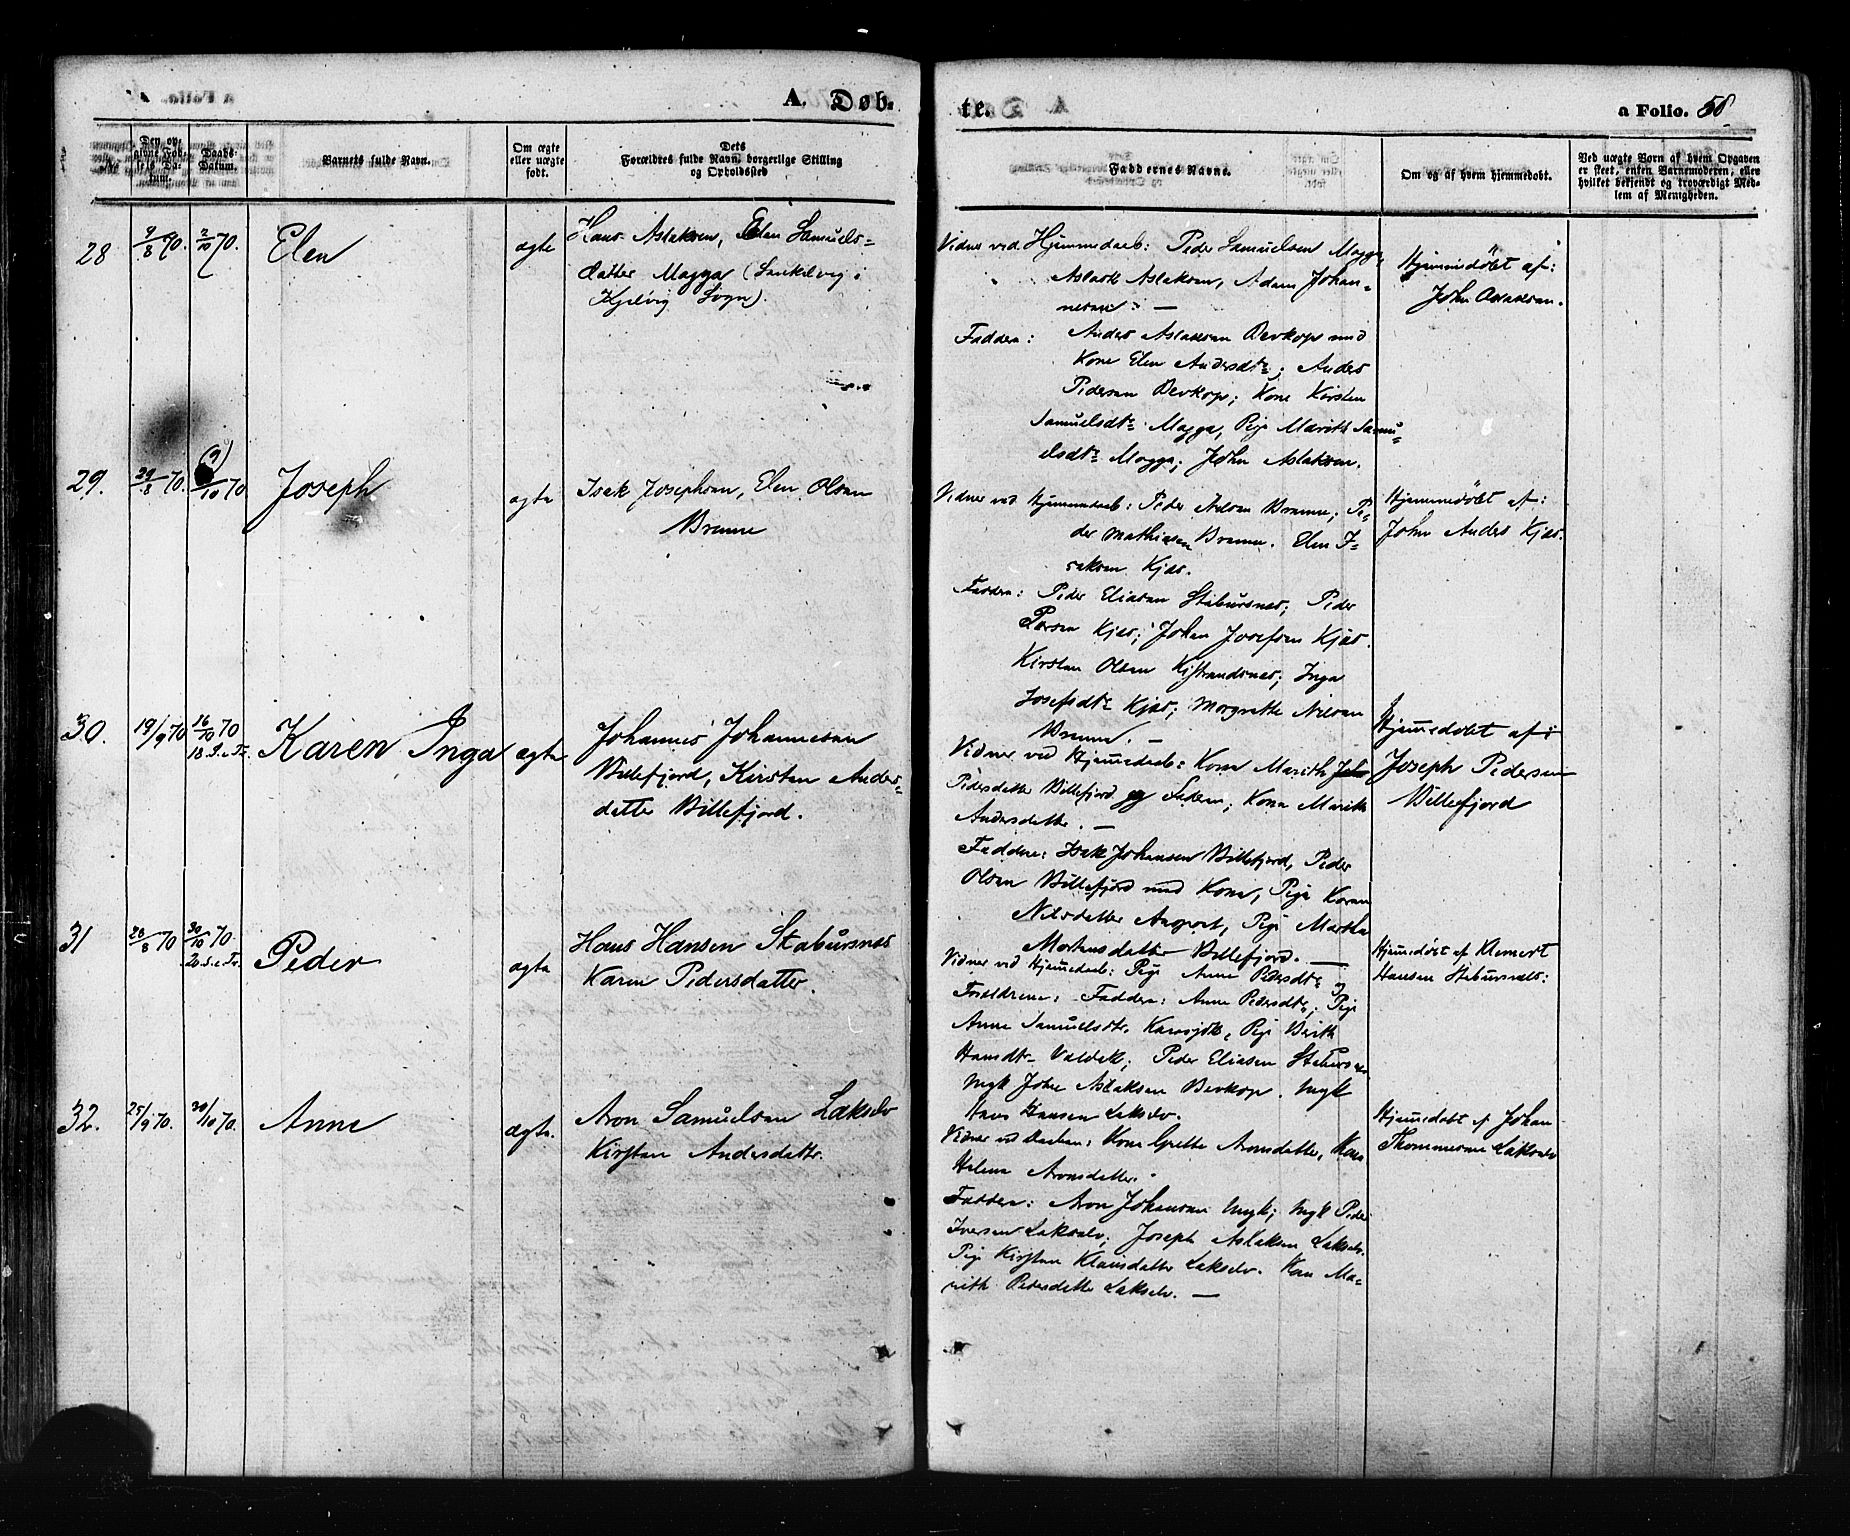 A. Døbte.
a Folio. 58
No
Den opgivne Fødsels Datum.
Daabs-Datum.
Barnets fulde Navn.
Om ægte eller uægte født.
Dets Forældres fulde Navn, borgerlige Stilling og Opholdssted
Faddernes Navne.
Om og af hvem hjemmedøbt.
Ved uægte Børn af hvem Opgaven er skeet, enten Barnemoderen, eller hvilket bekjendt og troværdigt Medlem af Menigheden.
28
9/8 70.
2/10 70.
Elen
ægte
Hans Aslaksen, Elen Samuels=
datter Magga (
Kjelvig Sogn).
Vidner ved Hjemmedaab: Peder Samuelsen Magga,
Aslack Aslaksen, Adam Johan-
nesen. —
Faddere: Anders Aslaksen Bevkop med
Kone Elen Andersdtr; Anders
Pedersen Bevkop; Kone Kirsten
Samuelsdtr Magga, Pige Marith Samu=
elsdtr Magga; John Aslaksen.
Hjemmedöbt af:
John Aslaksen.
29.
29/8 70.
(9)/10 70
Joseph
ægte
Isak Josephsen, Elen Olsen
Brenne
Vidner ved Hjemmedaab: Peder Nilsen Brenne; Pe-
der Mathisen Brenne. Elen I-
saksen Kjæs.
Faddere: Peder Eliasen Stabursnes; Peder
Larsen Kjæs; Johan Josefsen Kjæs.
Kirsten Olsen Kistrandsnes; Inga
Josefsdtr Kjæs; Margrethe Nilsen
Brenne. —
Hjemmedöbt af:
John Anders Kjæs.
30.
19/9 70
16/10 70
18 S. e. Tr.
Karen Inga
ægte
Johannes Johannesen
Billefjord, Kirsten Anders=
datter Billefjord.
Vidner ved Hjemmedaab: Kone Marith
Pedersdatter Billefjord og Faderen; Kone Marith
Andersdatter. —
Faddere: Isak Johansen Billefjord, Peder
Olsen Billefjord med Kone, Pige Karen
Nilsdatter, Pige Martha
Mortensdatter Billefjord. —
Hjemmedøbt af:
Joseph Pedersen
Billefjord
31
28/8 70
30/10 70
20. S. e. Tr.
Peder
ægte
Hans Hansen Stabursnes
Karen Pedersdatter.
Vidner ved Hjemmedaab: Pige Anne Pedersdtr og
Forældrene: Faddere: Anne Pedersdtr, Pige
Anne Samuelsdtr. Karasjok, Pige Berith
Hansdtr Valdak; Peder Eliasen Stabursnes
Ungk John Aslaksen Bevkop. Ungk
Hans Hansen Lakselv.
Hjemmedøbt af Klemert
Hansen Stabursnæs:
32.
25/9 70.
30/10 70.
Anne
ægte.
Aron Samuelsen Lakselv
Kirsten Andersdatter.
Vidner ved Daaben: Kone Grethe Aronsdatter, Kone
Helena Aronsdatter.
Faddere: Aron Johansen Ungk; Ungk Peder
Iversen Lakselv; Joseph Aslaksen Lakselv.
Pige Kirsten Klausdatter Lakselv. Kone Ma-
rith Pedersdatter Lakselv. —
Hjemmedøbt af Johan
Thommesen Lakselv